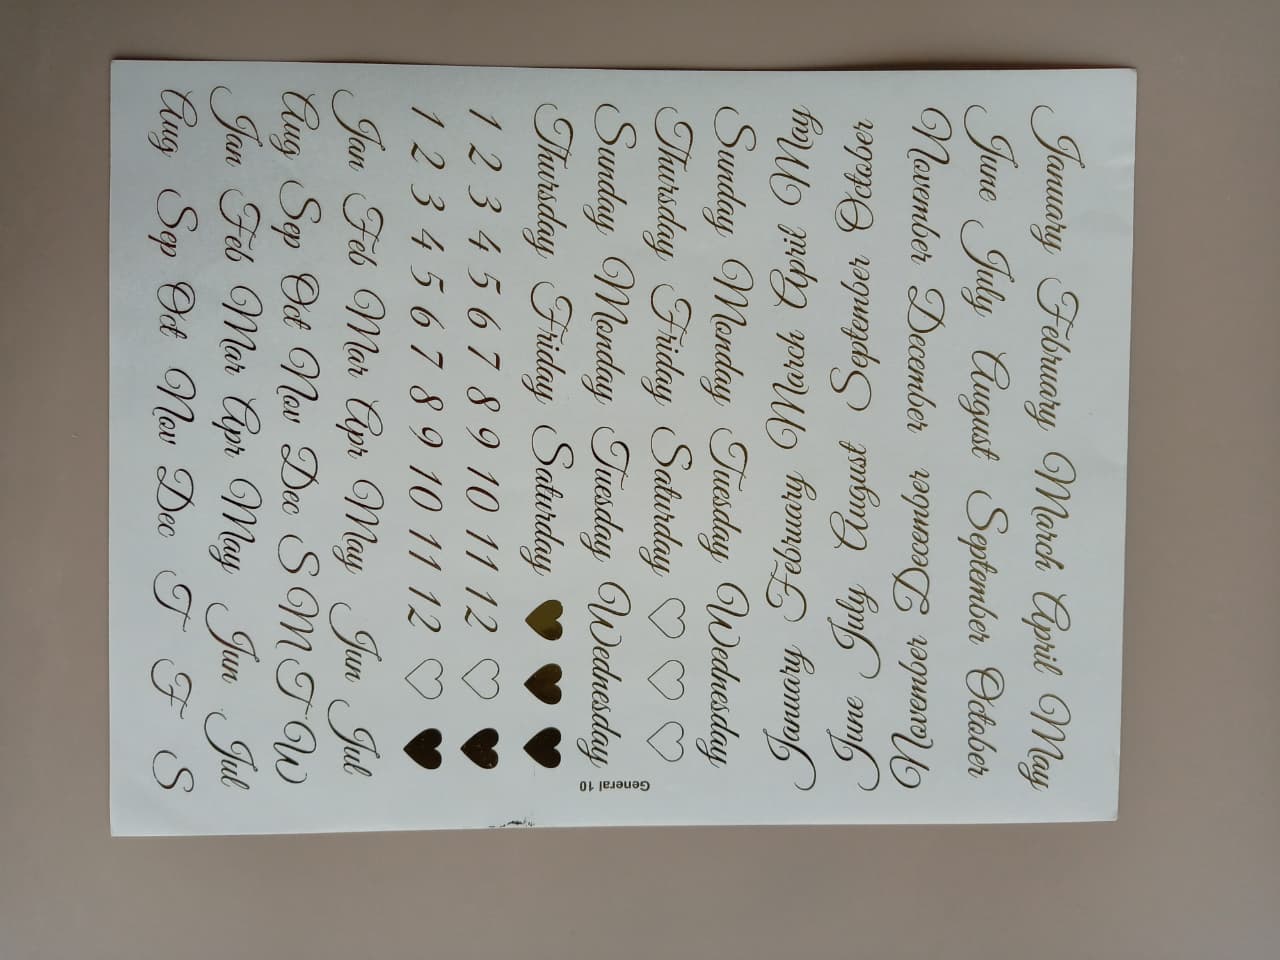 January February March April May
June July August September October
November December November December
June July August September October
January February March April May
Sunday Monday Tuesday Wednesday
Thursday Friday Saturday
Sunday Monday Tuesday Wednesday
Thursday Friday Saturday
General 10
1 2 3 4 5 6 7 8 9 10 11 12
1 2 3 4 5 6 7 8 9 10 11 12
Jan Feb Mar Apr May Jun Jul
Aug Sep Oct Nov Dec S M T W
Jan Feb Mar Apr May Jun Jul
Aug Sep Oct Nov Dec T F S